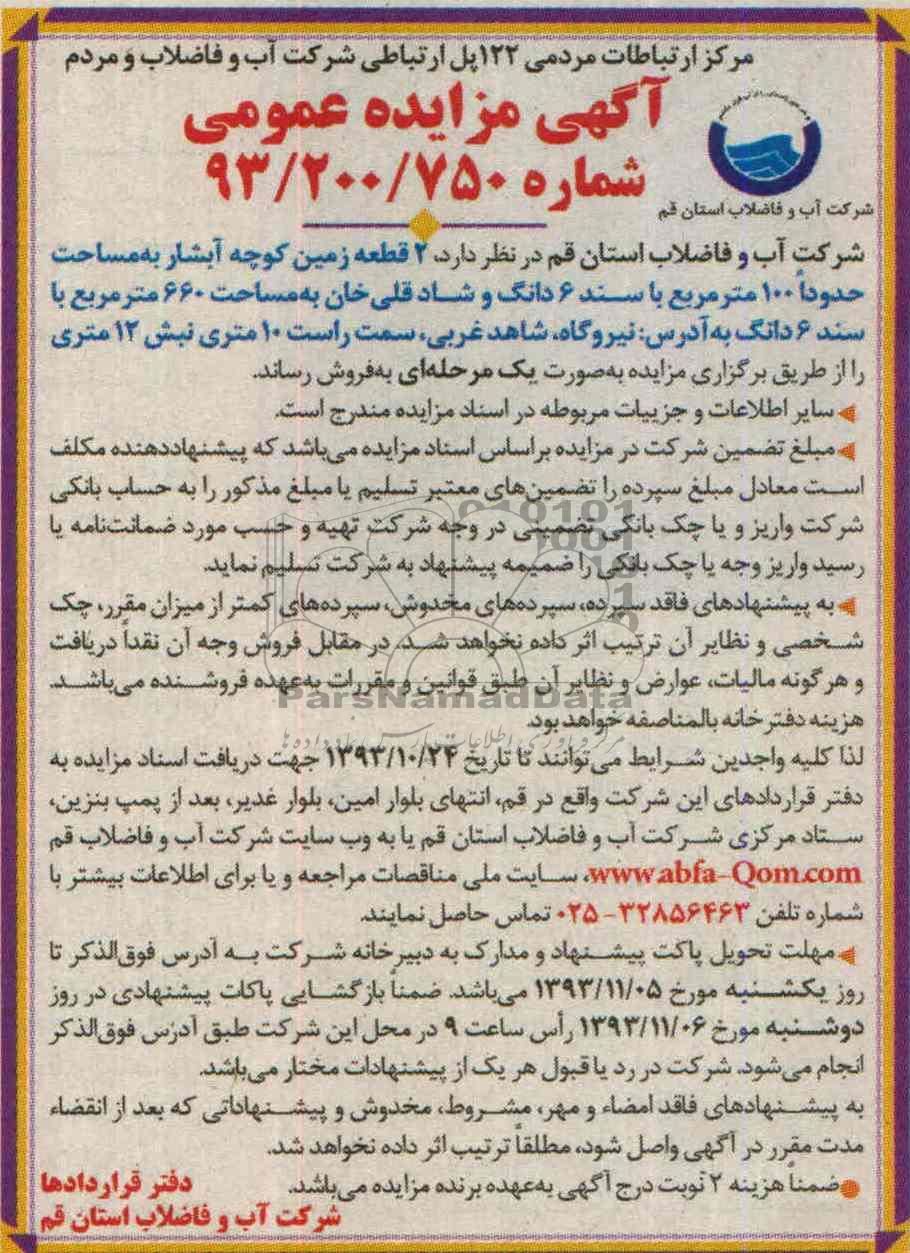 مرکز ارتباطات مردمی ۱۲۲ پل ارتباطی شرکت آب و فاضلاب و مردم
آگهی مزایده عمومی
شماره ۹۳/۲۰۰/۷۵۰
شرکت آب و فاضلاب استان قم
شرکت آب و فاضلاب استان قم در نظر دارد، ۲ قطعه زمین کوچه آبشار به‌مساحت
حدوداً ۱۰۰ مترمربع با سند ۶ دانگ و شاد قلی‌خان به‌مساحت ۶۶۰ مترمربع با
سند ۶ دانگ به آدرس: نیروگاه، شاهد غربی، سمت راست ۱۰ متری نبش ۱۲ متری
را از طریق برگزاری مزایده به‌صورت یک مرحله‌ای به‌فروش رساند.
سایر اطلاعات و جزییات مربوطه در اسناد مزایده مندرج است.
مبلغ تضمین شرکت در مزایده براساس اسناد مزایده می‌باشد که پیشنهاددهنده مکلف
است معادل مبلغ سپرده را تضمین‌های معتبر تسلیم یا مبلغ مذکور را به حساب بانکی
شرکت واریز و یا چک بانکی تضمینی در وجه شرکت تهیه و حسب مورد ضمانت‌نامه یا
رسید واریز وجه یا چک بانکی را ضمیمه پیشنهاد به شرکت تسلیم نماید.
به پیشنهادهای فاقد سپرده، سپرده‌های مخدوش، سپرده‌های کمتر از میزان مقرر، چک
شخصی و نظایر آن ترتیب اثر داده نخواهد شد. در مقابل فروش وجه آن نقداً دریافت
و هر گونه مالیات، عوارض و نظایر آن طبق قوانین و مقررات به‌عهده فروشنده می‌باشد.
ParsNamadData
هزینه دفترخانه بالمناصفه خواهد بود.
لذا کلیه واجدین شرایط می‌توانند تا تاریخ ۱۳۹۳/۱۰/۲۴ جهت دریافت اسناد مزایده به
دفتر قراردادهای این شرکت واقع در قم، انتهای بلوار امین، بلوار غدیر، بعد از پمپ بنزین،
ستاد مرکزی شرکت آب و فاضلاب استان قم یا به وب سایت شرکت آب و فاضلاب قم
www.abfa-Qom.com، سایت ملی مناقصات مراجعه و یا برای اطلاعات بیشتر با
شماره تلفن ۳۲۸۵۶۴۶۳-۰۲۵ تماس حاصل نمایند.
مهلت تحویل پاکت پیشنهاد و مدارک به دبیرخانه شرکت به آدرس فوق‌الذکر تا
روز یکشنبه مورخ ۱۳۹۳/۱۱/۰۵ می‌باشد. ضمناً بازگشایی پاکات پیشنهادی در روز
دوشنبه مورخ ۱۳۹۳/۱۱/۰۶ رأس ساعت ۹ در محل این شرکت طبق آدرس فوق‌الذکر
انجام می‌شود. شرکت در رد یا قبول هر یک از پیشنهادات مختار می‌باشد.
به پیشنهادهای فاقد امضاء و مهر، مشروط، مخدوش و پیشنهاداتی که بعد از انقضاء
مدت مقرر در آگهی واصل شود، مطلقاً ترتیب اثر داده نخواهد شد.
ضمناً هزینه ۲ نوبت درج آگهی به‌عهده برنده مزایده می‌باشد.
دفتر قراردادها
شرکت آب و فاضلاب استان قم